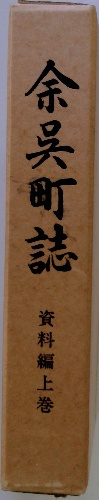 余呉町誌
資料編上巻